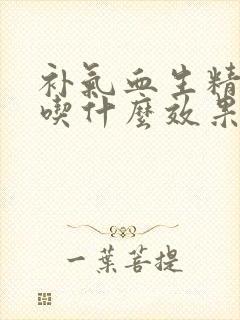 补氣血生精
喫什麽效果
一葉菩提